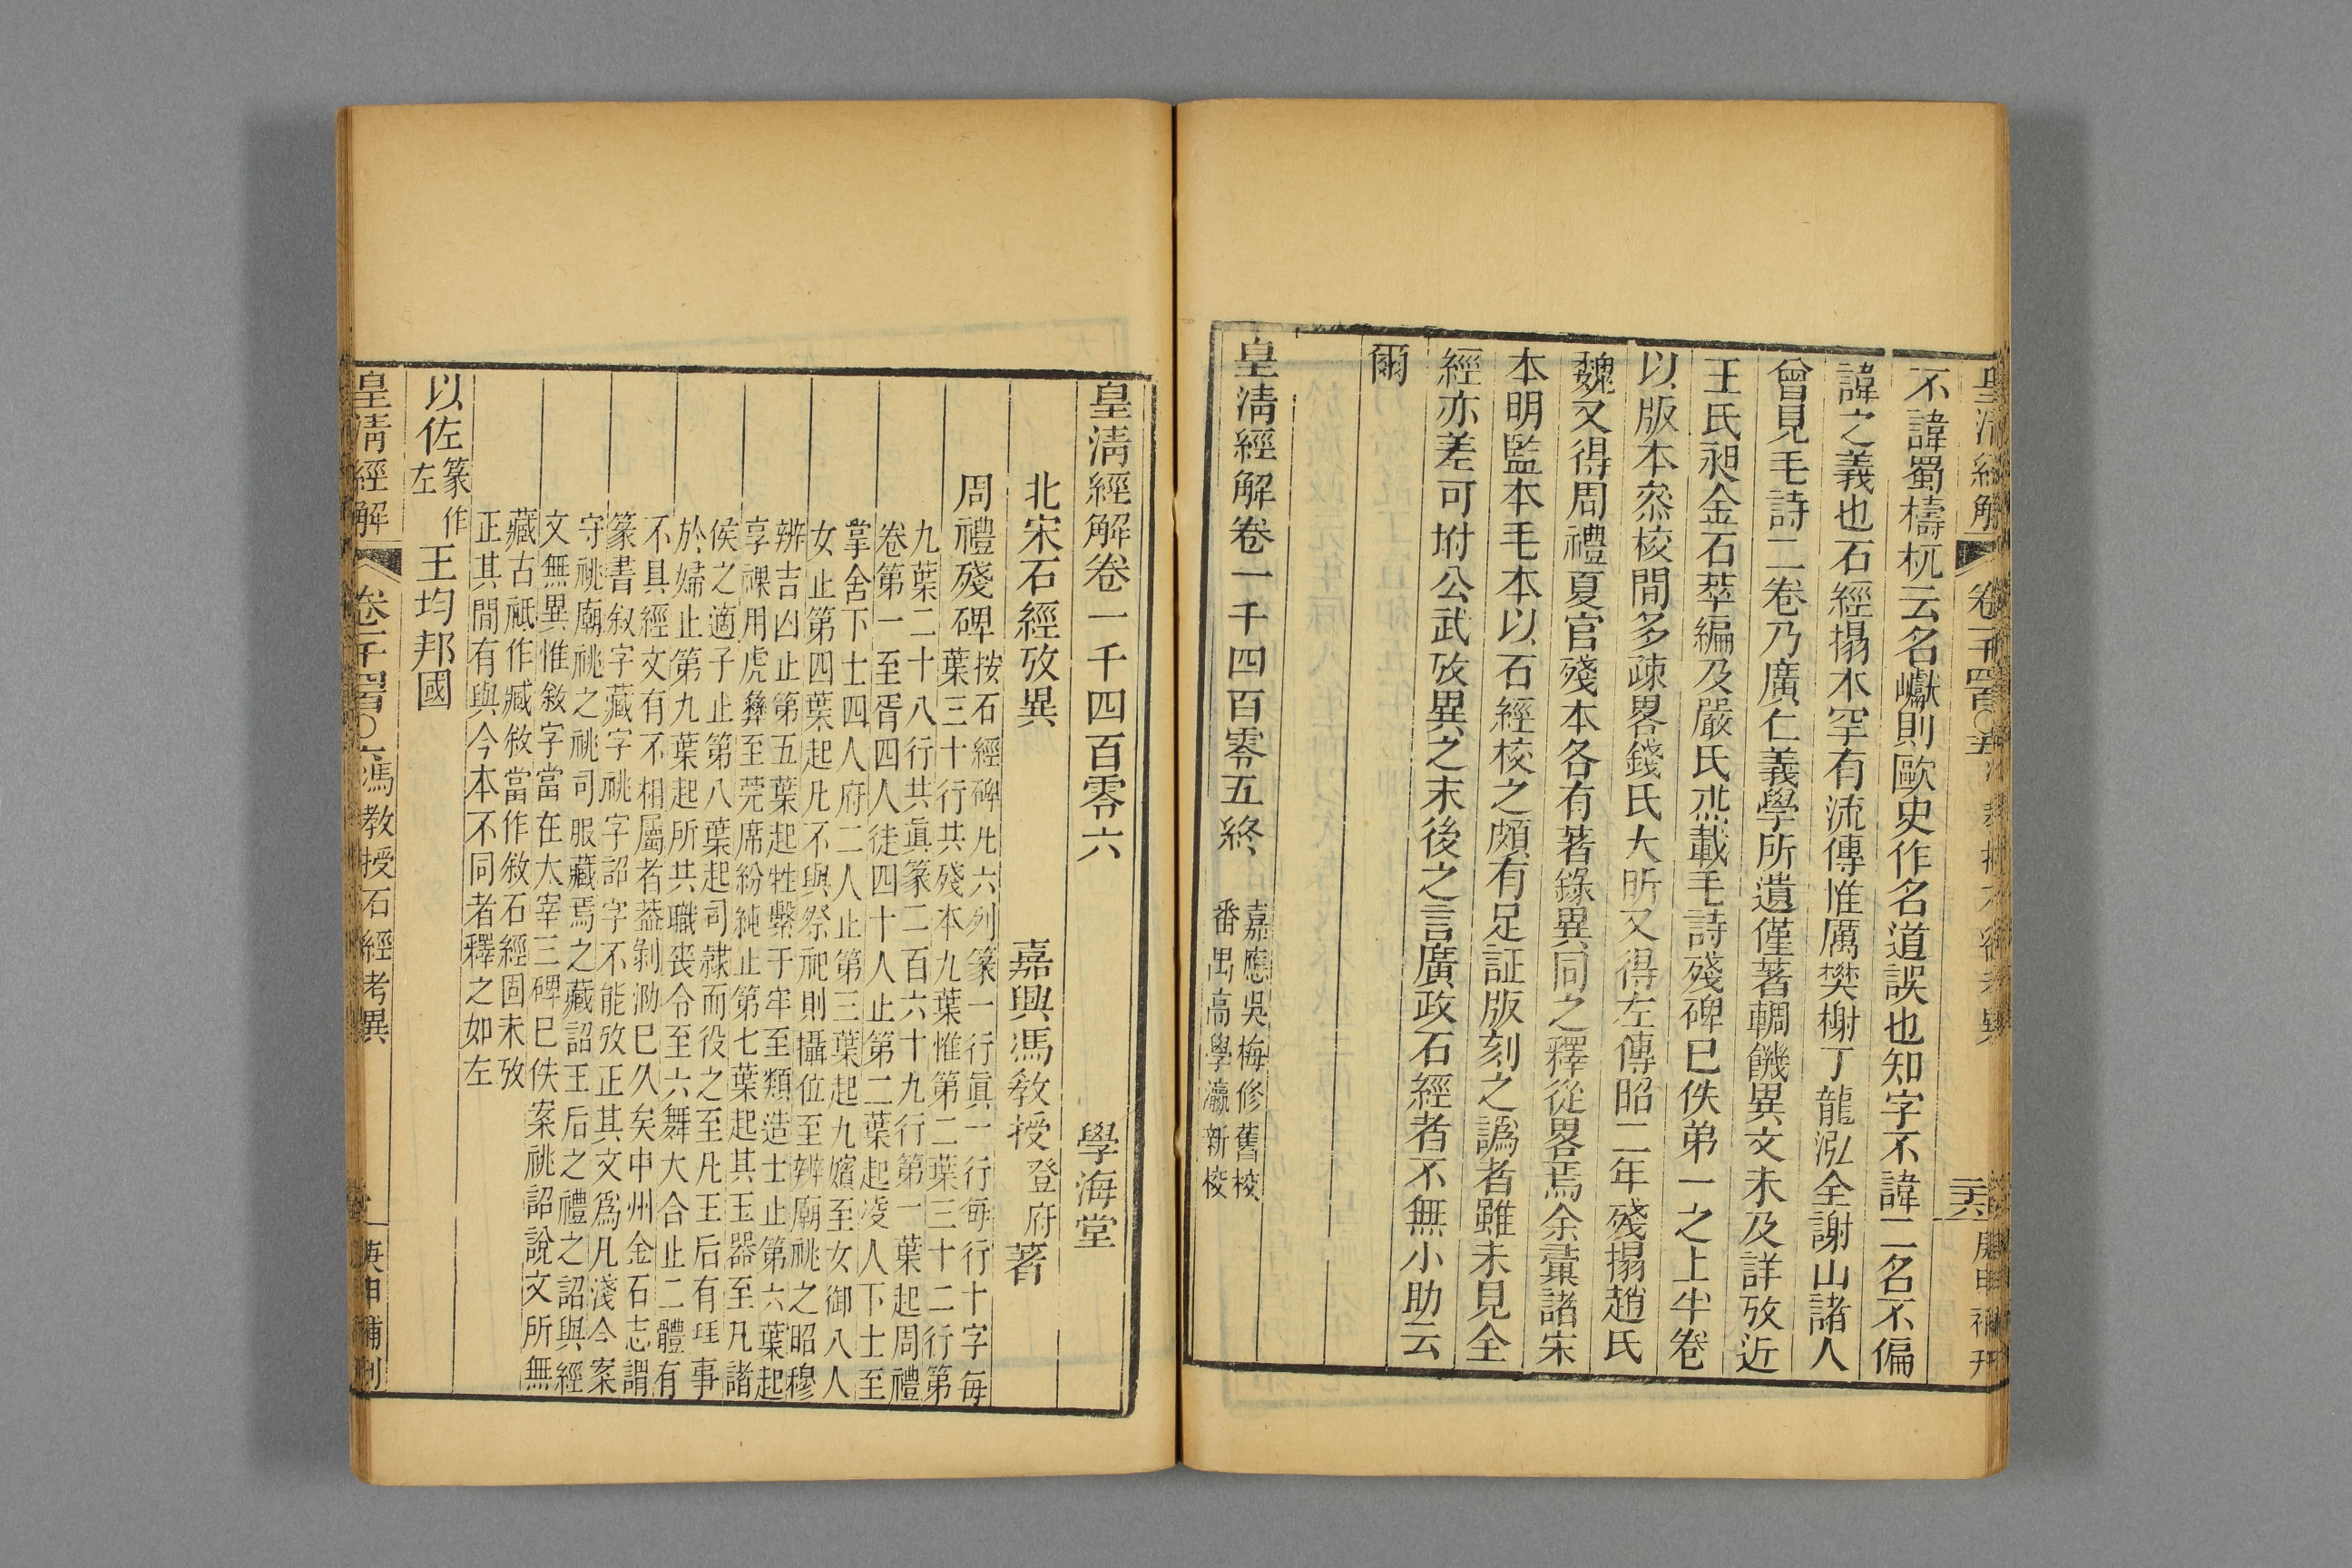 皇清經解
卷一千四百〇五
庚申補刊
不諱蜀檮杌云名巘則歐史作名道誤也知字不諱二名不偏
諱之義也石經搨本罕有流傳惟厲樊榭丁龍泓全謝山諸人
曾見毛詩二卷乃廣仁義學所遺僅著輖饑異文未及詳攷近
王氏昶金石萃編及嚴氏烝載毛詩殘碑巳佚弟一之上半卷
以版本叅校間多疎畧錢氏大昕又得左傳昭二年殘搨趙氏
魏又得周禮夏官殘本各有著錄異同之釋從畧焉余彙諸宋
本明監本毛本以石經校之頗有足証版刻之譌者雖未見全
經亦差可坿公武攷異之末後之言廣政石經者不無小助云
爾
皇清經解卷一千四百零五終
嘉應吳梅修舊校
番禺高學瀛新校
皇清經解卷一千四百零六
學海堂
北宋石經攷異
嘉興馮敎授登府著
周禮殘碑
按石經碑凡六列篆一行眞一行每行十字每
葉三十行共殘本九葉惟第二葉三十二行第
九葉二十八行共眞篆二百六十九行第一葉起周禮
卷第一至胥四人徒四十人止第二葉起凌人下士至
掌舍下士四人府二人止第三葉起九嬪至女御八人
女止第四葉起凡不與祭祀則攝位至辨廟祧之昭穆
辨吉凶止第五葉起牲繫于牢至類造士止第六葉起
享祼用虎彝至莞席紛純止第七葉起其玉器至凡諸
侯之適子止第八葉起司隷而役之至凡王后有𢪇事
於婦止第九葉起所共職喪令至六舞大合止二體有
不具經文有不相屬者葢剝泐巳久矣中州金石志謂
篆書叙字藏字祧字詔字不能攷正其文爲凡淺今案
守祧廟祧之祧司服藏焉之藏詔王后之禮之詔與經
文無異惟敘字當在大宰三碑巳佚案祧詔說文所無
藏古祇作臧敘當作敘石經固未攷
正其間有與今本不同者釋之如左
以佐篆作左王均邦國
皇清經解
卷一千四百〇六馮敎授石經考異
庚申補刊